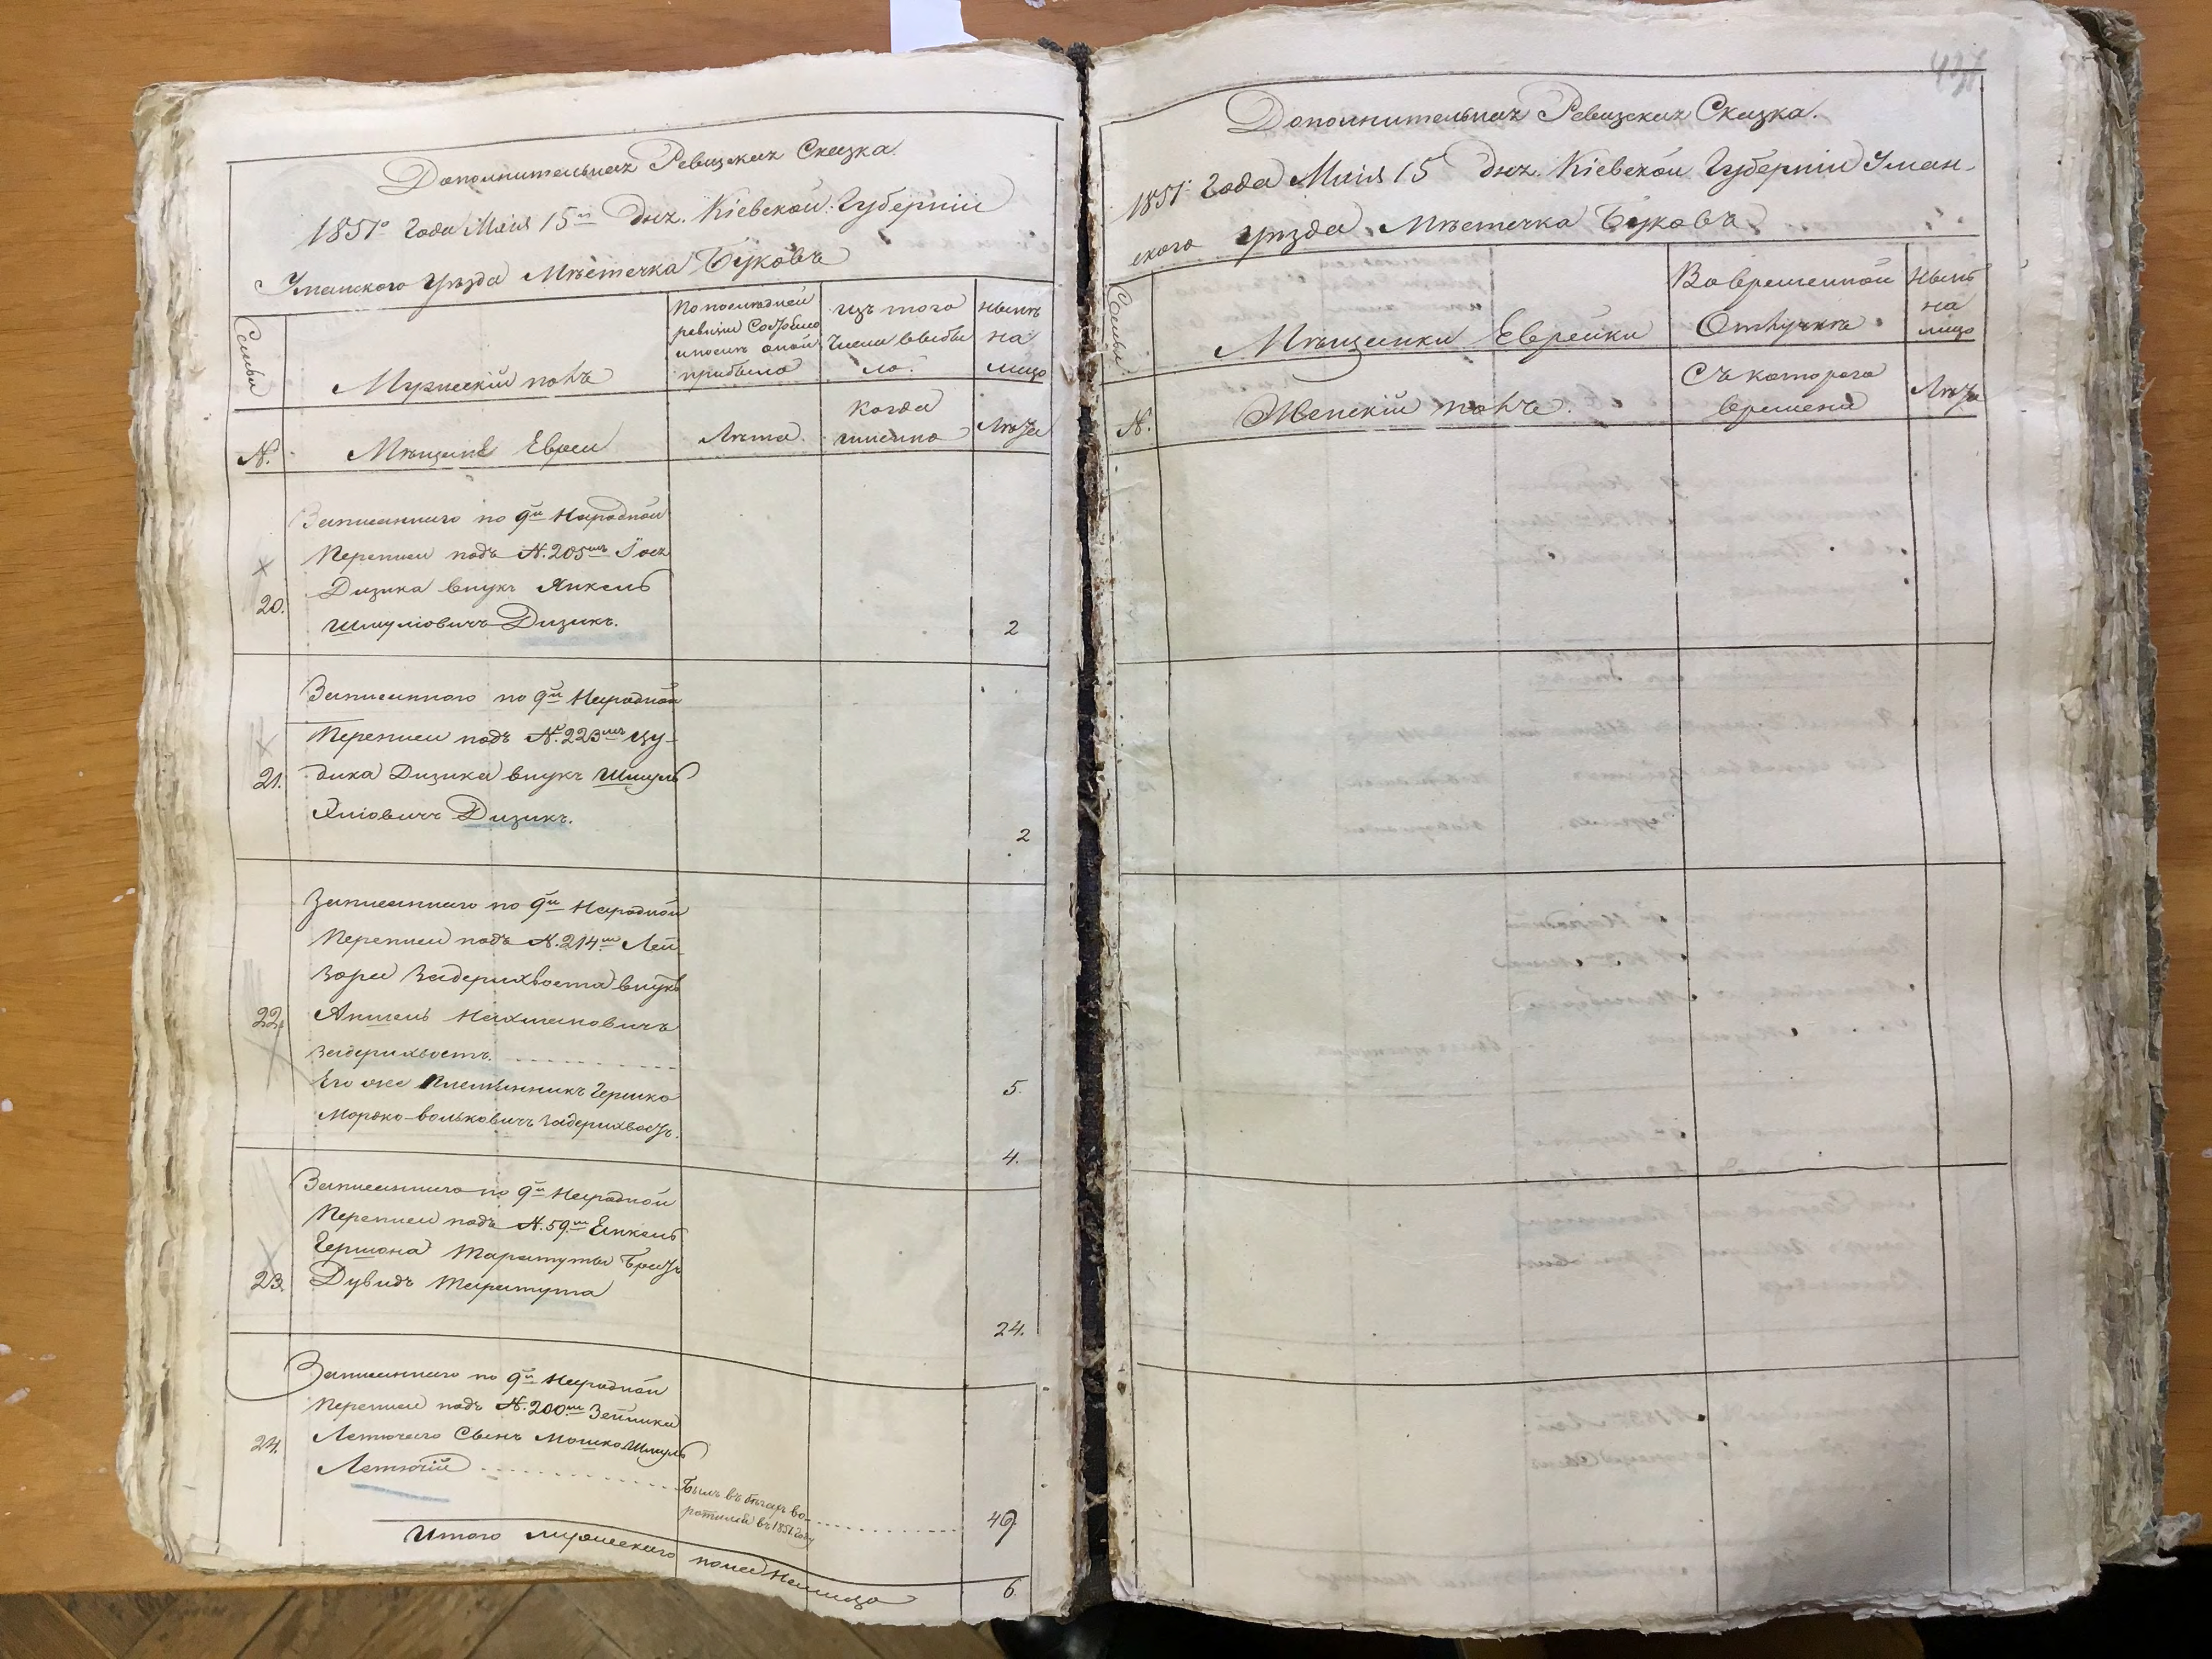 Дополнительная Ревизская Сказка.
1851го Года Маія 15го дня. Кіевской Губерніи
Уманского Уѣзда Мѣстечка Буковъ
Семьи
Мужескій полъ
По последней
ревизіи состояло
и после оной
прибыло
изъ того
числа выбы
ло.
нынѣ
на
лицо
№.
Мѣщане Евреи
Лѣта.
когда
именно
Лѣта
Записанного по 9й Народной
Переписи подъ №.205мъ Іося
Дизика внукъ Янкель
20.
Шмуліовичъ Дизикъ.
2
Записанного по 9й Народной
Переписи подъ №.223мъ Иу-
21.
дика Дизика внукъ Шмуль
Дизикъ.
2
Записанного по 9й Народной
Переписи подъ №.214м Лей-
зора Задерихвоста внукъ
22.
Аншель Нахмановичъ
Задерихвостъ.
5.
Его же Племянникъ Гершко
Мордко-Вольковичъ Задерихвостъ.
4.
Записанного по 9й Народной
Переписи подъ №.59м Янкель
Гершона Таратуты Братъ
23.
Дувидъ Таратута
24.
Записанного по 9й Народной
Переписи подъ №.200м
24.
Летючаго Сынъ Мошко Шмуль
Летючій
Былъ въ бегахъ во-
ротился въ 1851 году
49.
Итого мужеского пола на лицо
6
437
Дополнительная Ревизская Сказка.
1851. Года Маія 15 дня. Кіевской Губерніи Уман-
ского Уѣзда Мѣстечка Буковъ
Семьи
Мѣщанки Еврейки
Во временной
Отлучкѣ
нынѣ
на
лицо
№.
Женскій полъ.
Съ которого
времени
Лѣта